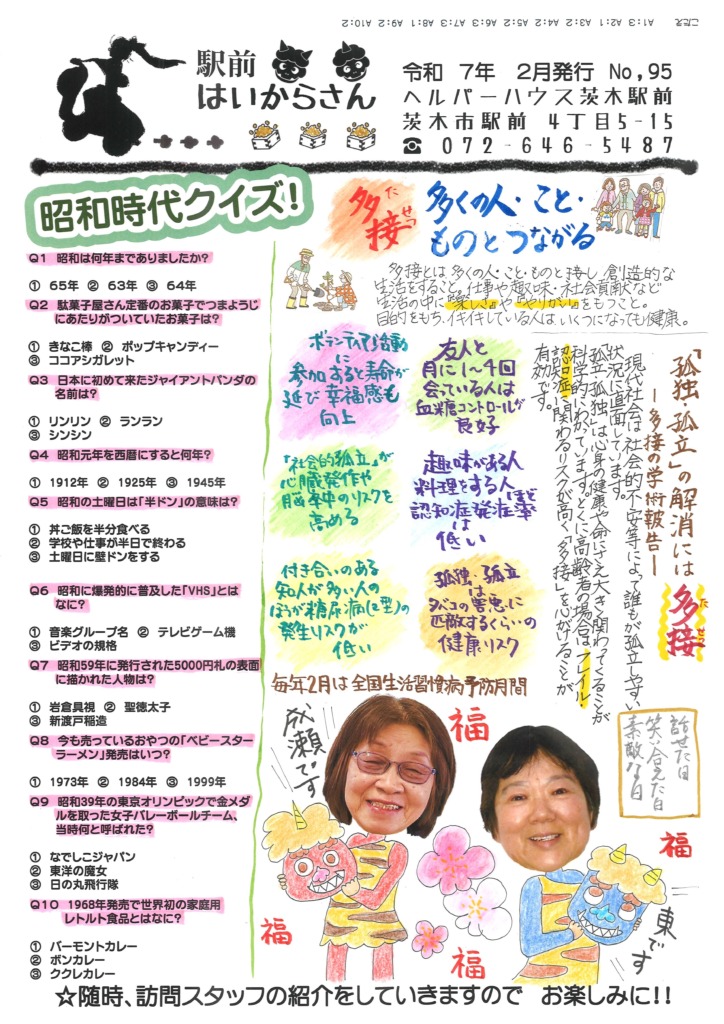 こたえ A1:3 A2:1 A3:2 A4:2 A5:2 A6:3 A7:3 A8:1 A9:2 A10:2
駅前
はいからさん
令和 7年 2月発行 No,95
ヘルパーハウス茨木駅前
茨木市駅前 4丁目5-15
☎ 072-646-5487
昭和時代クイズ!
Q1 昭和は何年までありましたか?
① 65年 ② 63年 ③ 64年
Q2 駄菓子屋さん定番のお菓子でつまようじ
にあたりがついていたお菓子は?
① きなこ棒 ② ポップキャンディー
③ ココアシガレット
Q3 日本に初めて来たジャイアントパンダの
名前は?
① リンリン ② ランラン
③ シンシン
Q4 昭和元年を西暦にすると何年?
① 1912年 ② 1925年 ③ 1945年
Q5 昭和の土曜日は「半ドン」の意味は?
① 丼ご飯を半分食べる
② 学校や仕事が半日で終わる
③ 土曜日に壁ドンをする
Q6 昭和に爆発的に普及した「VHS」とは
なに?
① 音楽グループ名 ② テレビゲーム機
③ ビデオの規格
Q7 昭和59年に発行された5000円札の表面
に描かれた人物は?
① 岩倉具視 ② 聖徳太子
③ 新渡戸稲造
Q8 今も売っているおやつの「ベビースター
ラーメン」発売はいつ?
① 1973年 ② 1984年 ③ 1999年
Q9 昭和39年の東京オリンピックで金メダ
ルを取った女子バレーボールチーム、
当時何と呼ばれた?
① なでしこジャパン
② 東洋の魔女
③ 日の丸飛行隊
Q10 1968年発売で世界初の家庭用
レトルト食品とはなに?
① バーモントカレー
② ボンカレー
③ ククレカレー
多接
たせつ
多くの人・こと・
ものとつながる
多接とは多くの人・こと・ものと接し、創造的な
生活をすること。仕事や趣味・社会貢献など
生活の中に『楽しさ』や『やりがい』をもつこと。
目的をもち、イキイキしている人は、いくつになっても健康。
ボランティア活動
に
参加すると寿命が
延び幸福感も
向上
友人と
月に1~4回
会っている人は
血糖コントロールが
良好
「社会的孤立」が
心臓発作や
脳卒中のリスクを
高める
趣味がある人
料理をする人ほど
認知症発症率
は
低い
付き合いのある
知人が多い人の
ほうが糖尿病(2型)の
発生リスクが
低い
孤独・孤立
は
タバコの害悪に
匹敵するくらいの
健康リスク
「孤独・孤立」の解消には
多接
たせつ
―多接の学術報告―
現代社会は社会的不安等によって誰もが孤立しやすい
状況に直面しています。
「孤立・孤独」は心身の健康や命にさえ大きく関わってくることが
科学的にわかっています。とくに高齢者の場合はフレイル・
認知症に関わるリスクが高く、「多接」を心がけることが
有効です。
毎年2月は全国生活習慣病予防月間
話せた日
笑い合えた日
素敵な日
成瀬です
福
福
東です
福
福
☆随時、訪問スタッフの紹介をしていきますので お楽しみに!!